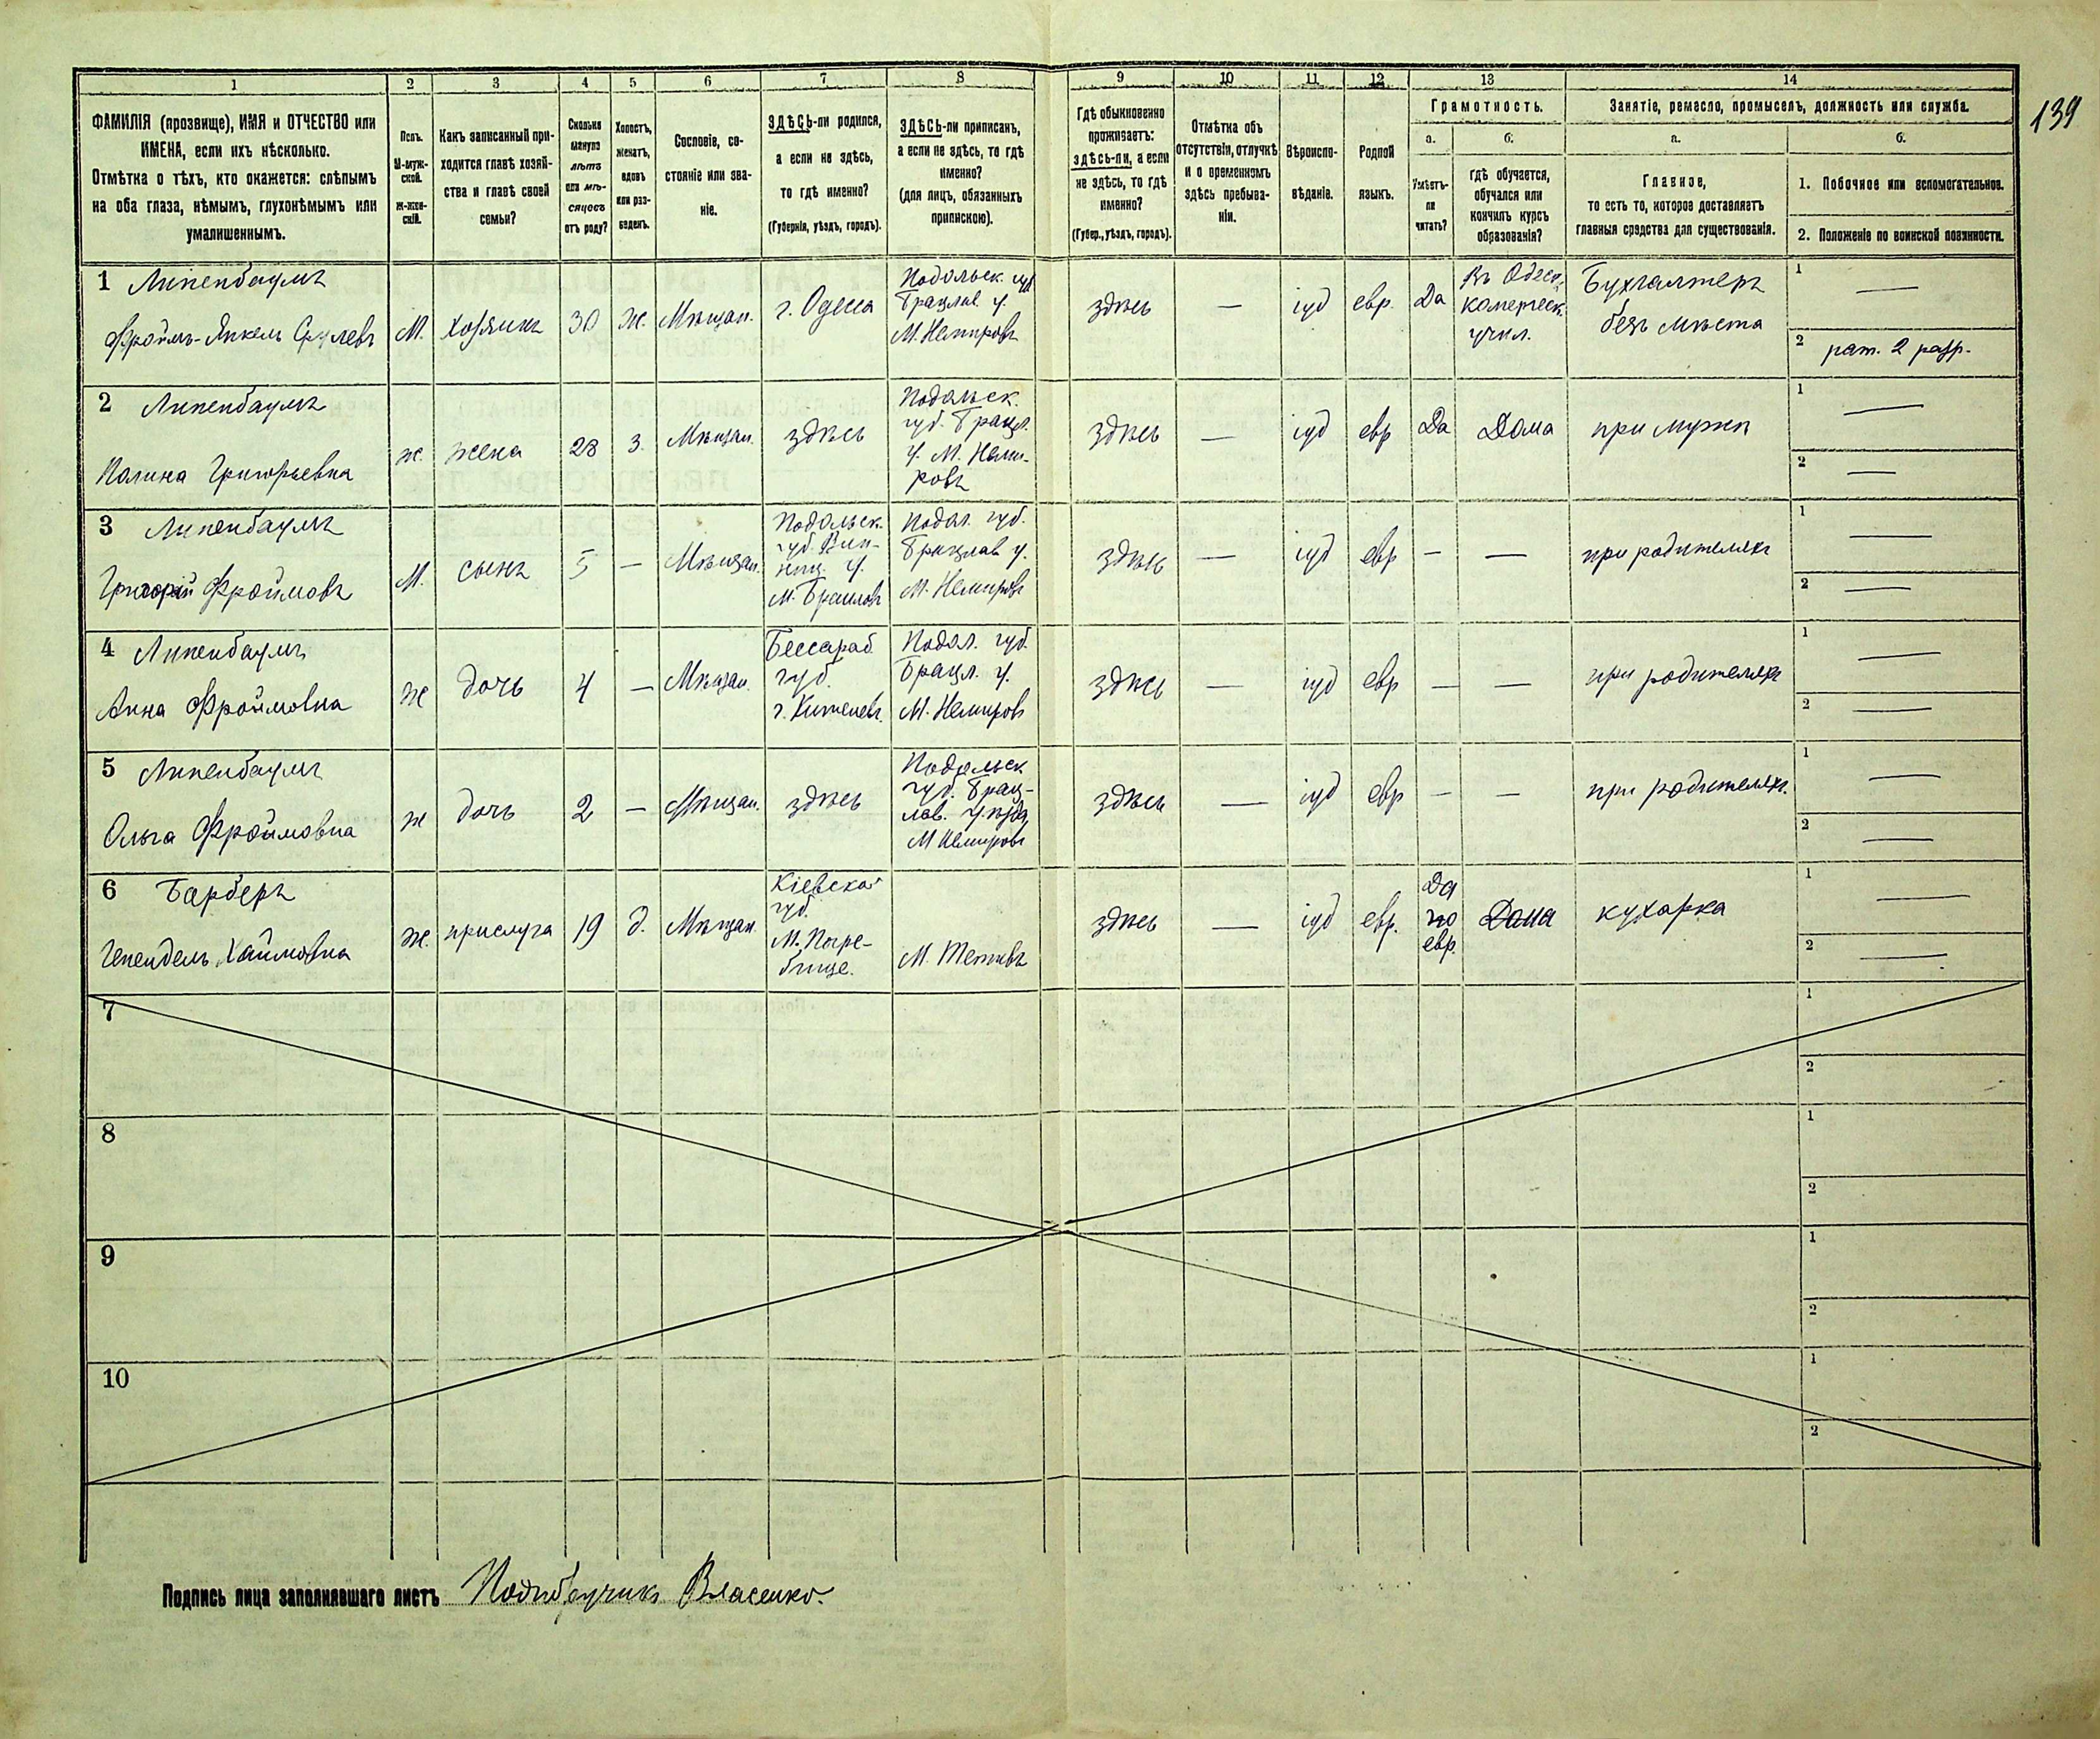 139
1 2 3 4 5 6 7 8 9 10 11 12 13 14
ФАМИЛІЯ (прозвище), ИМЯ и ОТЧЕСТВО или
ИМЕНА, если ихъ нѣсколько.
Отмѣтка о тѣхъ, кто окажется: слѣпымъ
на оба глаза, нѣмымъ, глухонѣмымъ или
умалишеннымъ.
Полъ.
М-муж-
ской.
ж-жен-
скій.
Какъ записанный при-
ходится главѣ хозяй-
ства и главѣ своей
семьи?
Сколько
минуло
лѣтъ
или мѣ-
сяцевъ
отъ роду?
Холостъ,
женатъ,
вдовъ
или раз-
веденъ.
Сословіе, со-
стояніе или зва-
ніе.
ЗДѢСЬ-ли родился,
а если не здѣсь,
то гдѣ именно?
(Губернія, уѣздъ, городъ).
ЗДѢСЬ-ли приписанъ,
а если не здѣсь, то гдѣ
именно?
(для лицъ, обязанныхъ
припискою).
Гдѣ обыкновенно
проживаетъ:
здѣсь-ли, а если
не здѣсь, то гдѣ
именно?
(Губер., уѣздъ, городъ).
Отмѣтка объ
отсутствіи, отлучкѣ
и о временномъ
здѣсь пребыва-
ніи.
Вѣроиспо-
вѣданіе.
Родной
языкъ.
Грамотность.
а.
Умѣетъ-
ли
читать?
б.
гдѣ обучается,
обучался или
кончилъ курсъ
образованія?
Занятіе, ремесло, промыселъ, должность или служба.
а.
Главное,
то есть то, которое доставляетъ
главныя средства для существованія.
б.
1. Побочное или вспомогательное.
2. Положеніе по воинской повинности.
1 Липенбаумъ
Фроймъ-Янкель
М.
хозяинъ
30
ж.
Мѣщан.
г. Одесса
Подольск. губ
Брацлав у.
М. Немировъ
здѣсь
—
іуд
евр.
Да
Въ Одесс.
комерческ.
учил.
Бухгалтеръ
безъ мѣста
1 —
2 рат. 2 разр.
2 Липенбаумъ
Полина Григорьевна
ж.
жена
28
з.
Мѣщан.
здѣсь
Подольск.
губ. Брацл.
у. М. Неми-
ровъ
здѣсь
—
іуд
евр
Да
Дома
при мужѣ
1 —
2 —
3 Липенбаумъ
Григорій Фроймовъ
М.
сынъ
5
—
Мѣщан.
Подольск.
губ. Вин-
ниц. у.
М. Браиловъ
Подол. губ.
Брацлав у.
М. Немировъ
здѣсь
—
іуд
евр
—
—
при родителяхъ
1 —
2 —
4 Липенбаумъ
Анна Фроймовна
ж
дочь
4
—
Мѣщан.
Бессараб
губ.
г. Кишеневъ.
Подол. губ.
Брацл. у.
М. Немировъ
здѣсь
—
іуд
евр
—
—
при родителяхъ
1 —
2 —
5 Липенбаумъ
Ольга Фроймовна
ж
дочь
2
—
Мѣщан.
здѣсь
Подольск
губ. Брац-
лав. уѣзда
М Немировъ
здѣсь
—
іуд
евр
—
—
при родителяхъ.
1 —
2 —
6 Барберъ
Хаимовна
ж.
прислуга
19
д.
Мѣщан.
Кіевская
губ.
М. Погре-
бище.
М. Тетіевъ
здѣсь
—
іуд
евр.
Да
по
евр.
Дома
кухарка
1 —
2 —
7
1
2
8
1
2
9
1
2
10
1
2
Подпись лица заполнявшаго листъ Власенко.